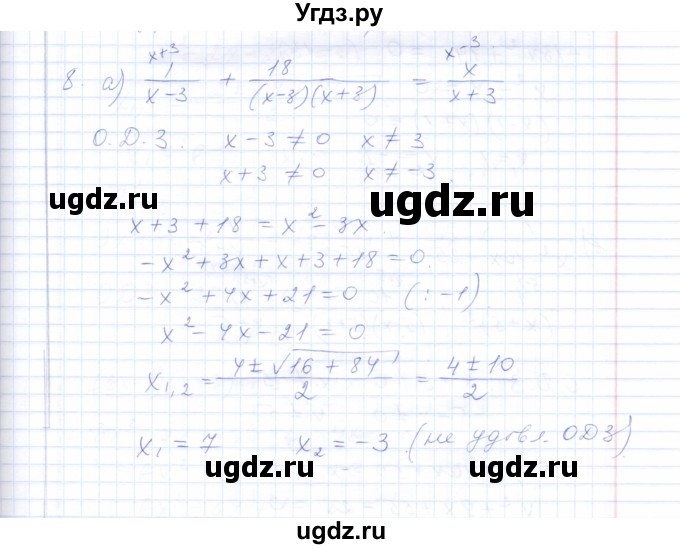 Угдз.ру
8. а) x+3 1/(x-3) + 18/((x-3)(x+3)) = x-3 x/(x+3)
О.Д.З. x-3 ≠ 0 x ≠ 3
x+3 ≠ 0 x ≠ -3
ugdz.ru ugdz.ru
x+3+18 = x² - 3x
-x² + 3x + x + 3 + 18 = 0.
-x² + 4x + 21 = 0 (: -1)
ugdz.ru ugdz.ru
x² - 4x - 21 = 0
x₁,₂ = (4 ± √(16 + 84))/2 = (4 ± 10)/2
ugdz.ru
x₁ = 7 x₂ = -3 (не удовл. ОДЗ)
ugdz.ru ugdz.ru
ugdz.ru